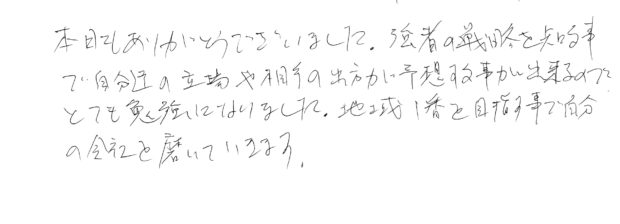 本日もありがとうございました。強者の戦略を知る事
で自分達の立場や相手の出方が予想する事が出来るので
とても勉強になりました。地域1番を目指す事で自分
の会社を磨いていきます。